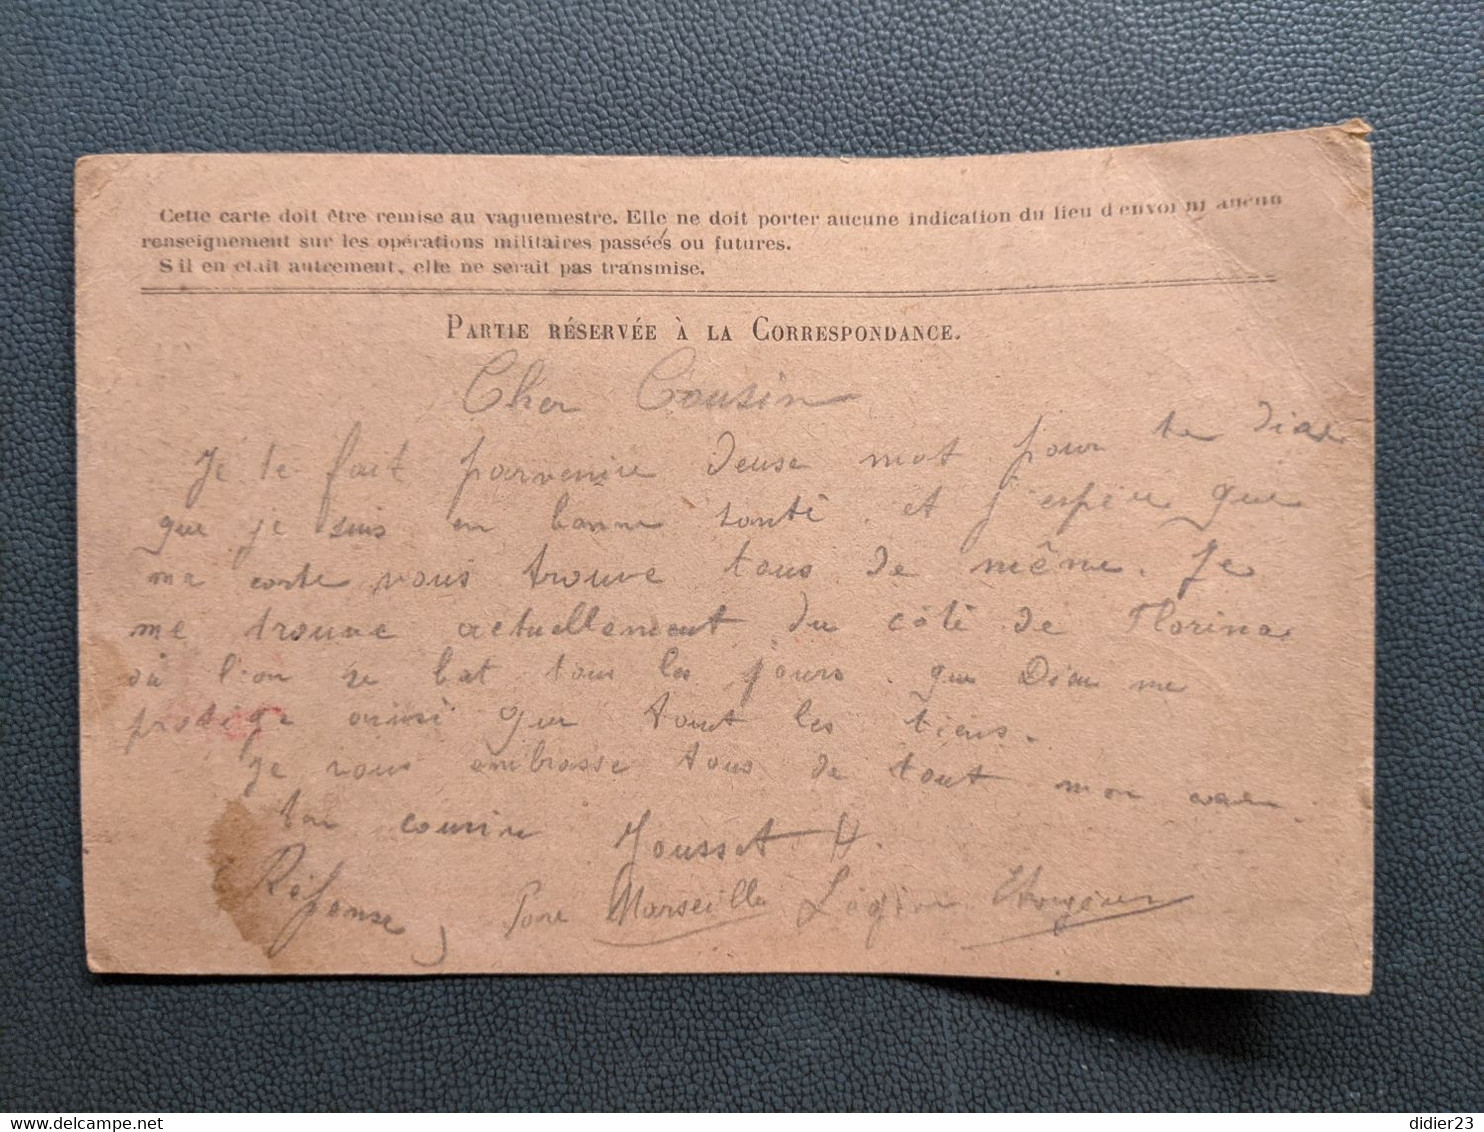 Cette carte doit être remise au vaguemestre. Elle ne doit porter aucune indication du lieu d'envoi ni aucun
renseignement sur les opérations militaires passées ou futures.
S'il en était autrement, elle ne serait pas transmise.
PARTIE RÉSERVÉE À LA CORRESPONDANCE.
Cher Cousin
Je te fait parvenire deuse mot pour te dire
que je suis en bonne santé. et j'espère que
ma carte vous trouve tous de même. Je
me trouve actuellement du côté de Florina
où l'on se bat tous les jours. que Dieu me
protège ainsi que tout les tiens.
Je vous embrasse tous de tout mon cœur
ton cousin Jousset H.
Réponse, Par Marseille Légion Etrangère
didier23